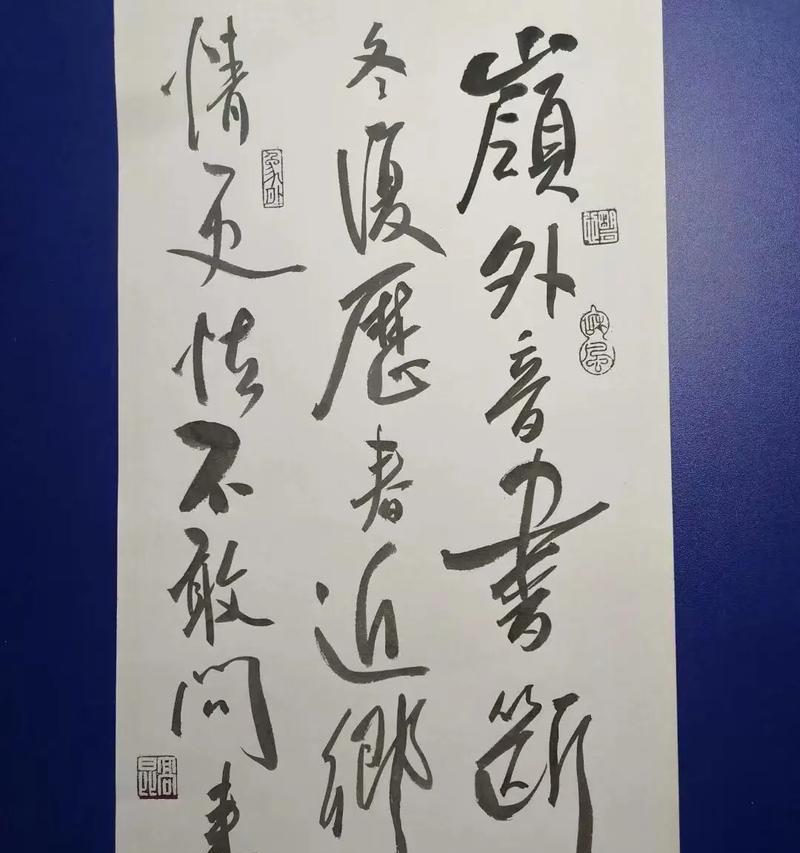 嶺外音書斷
冬復歷春近鄉
情更怯不敢問